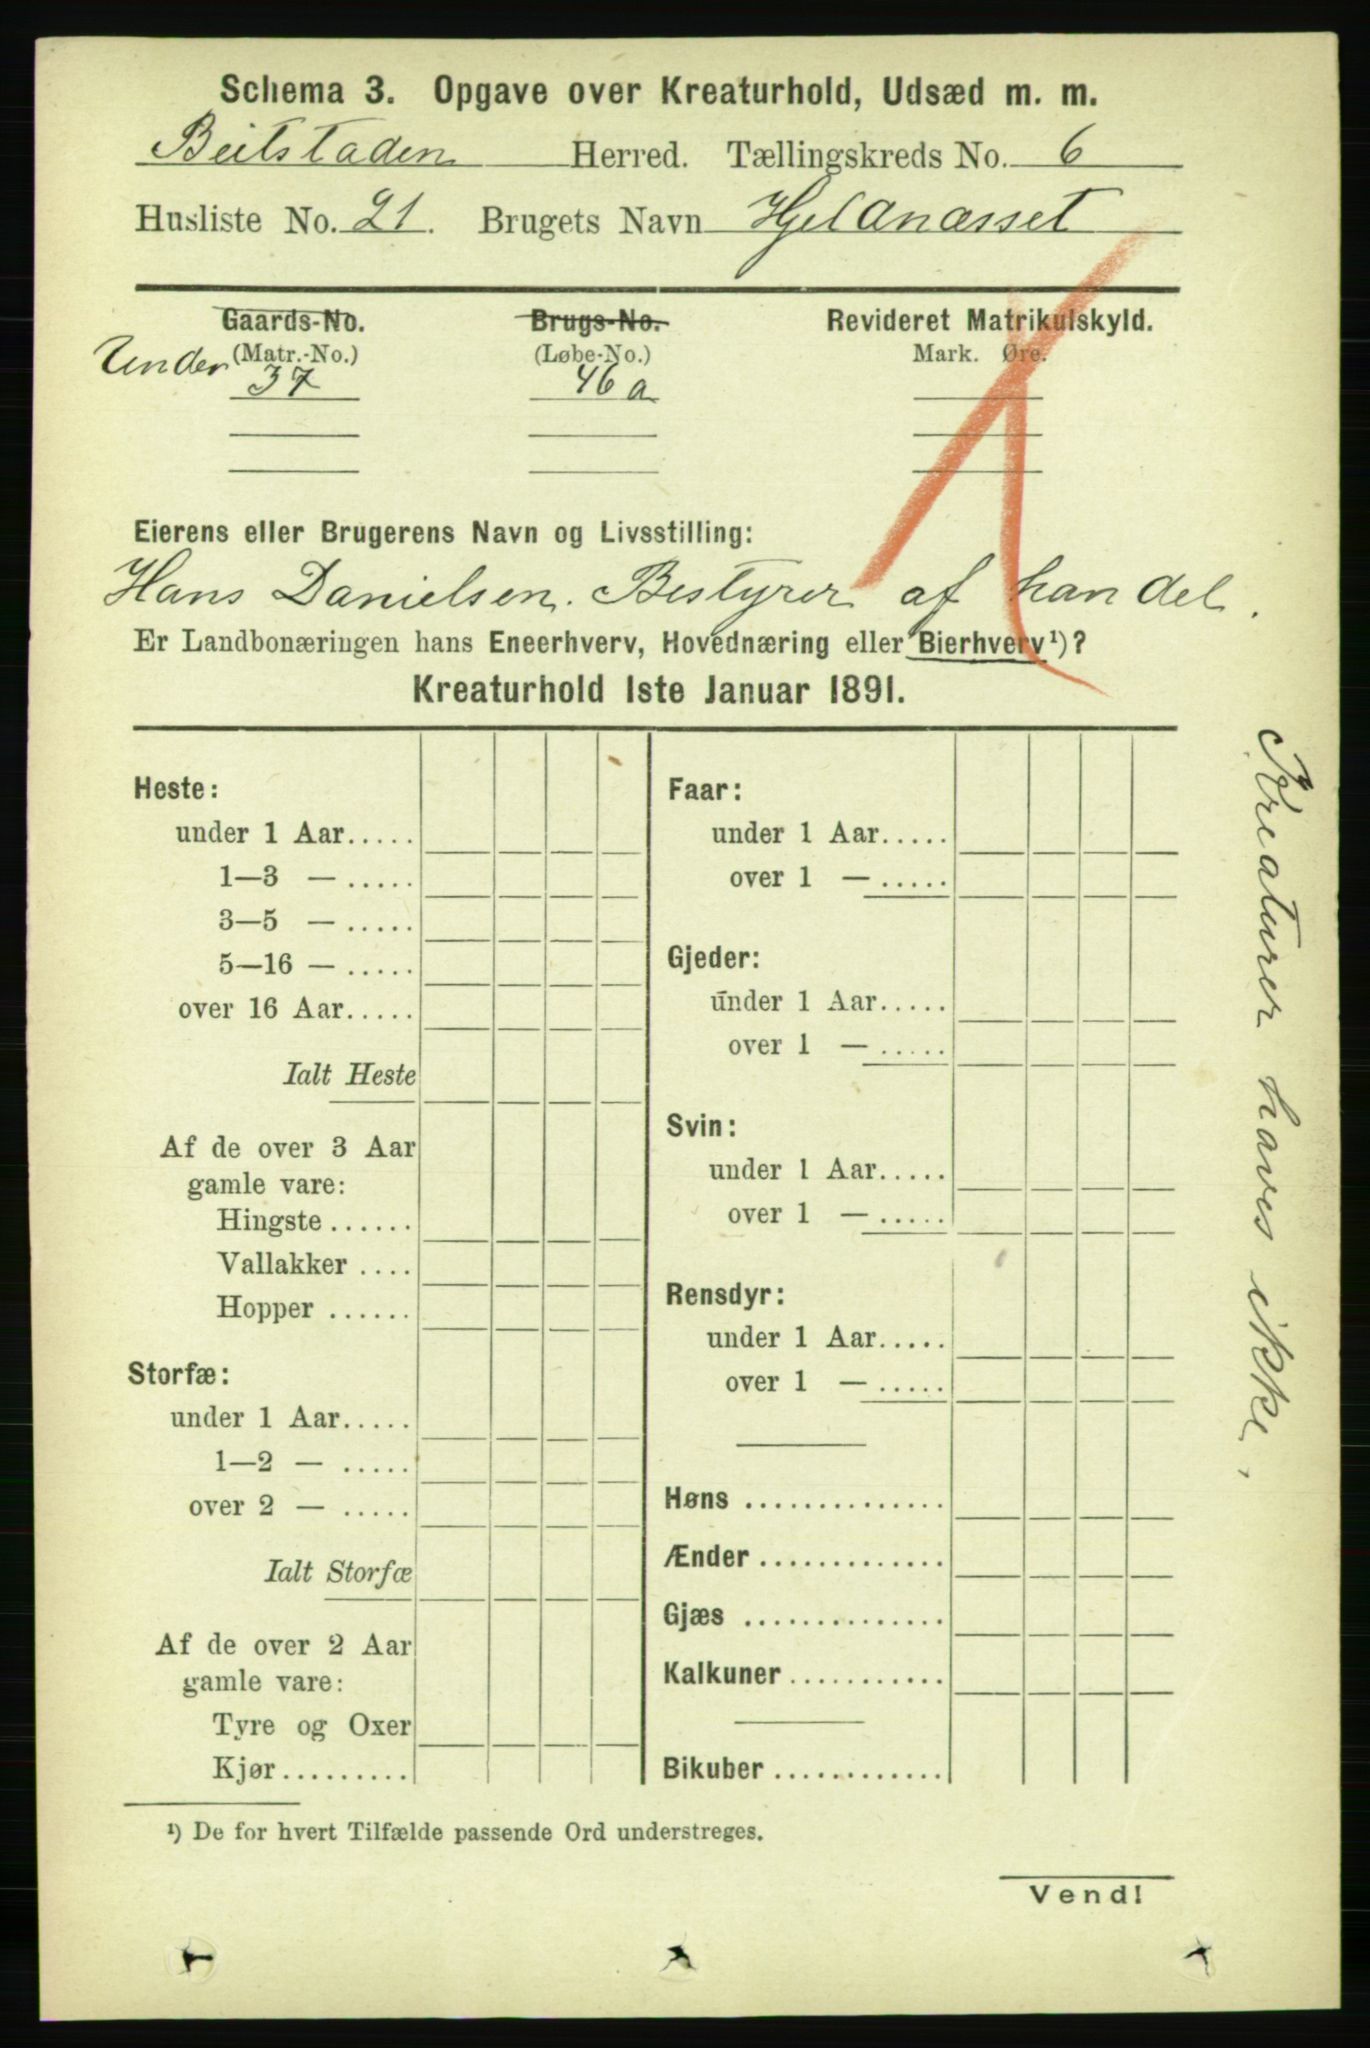 Schema 3. Opgave over Kreaturhold, Udsæd m. m.
Beitstaden Herred. Tællingskreds No. 6
Husliste No. 21. Brugets Navn Hjelanæsset
Gaards-No. Brugs-No. Revideret Matrikulskyld.
Under (Matr.-No.) (Løbe-No.) Mark. Øre.
37 46 a
Eierens eller Brugerens Navn og Livsstilling:
Hans Danielsen. Bestyrer af handel.
Er Landbonæringen hans Eneerhverv, Hovednæring eller Bierhverv¹)?
Kreaturhold 1ste Januar 1891.
Heste:
under 1 Aar.....
1—3 — .....
3—5 — .....
5—16 — .....
over 16 Aar.....
Ialt Heste
Af de over 3 Aar
gamle vare:
Hingste ......
Vallakker ....
Hopper ......
Storfæ:
under 1 Aar.....
1—2 — .....
over 2 — .....
Ialt Storfæ
Af de over 2 Aar
gamle vare:
Tyre og Oxer
Kjør.........
Faar:
under 1 Aar.....
over 1 — .....
Gjeder:
under 1 Aar.....
over 1 — .....
Svin:
under 1 Aar.....
over 1 — .....
Rensdyr:
under 1 Aar.....
over 1 — .....
Høns ..............
Ænder .............
Gjæs ..............
Kalkuner ...........
Bikuber ............
Kreaturer haves ikke.
¹) De for hvert Tilfælde passende Ord understreges.
Vend!